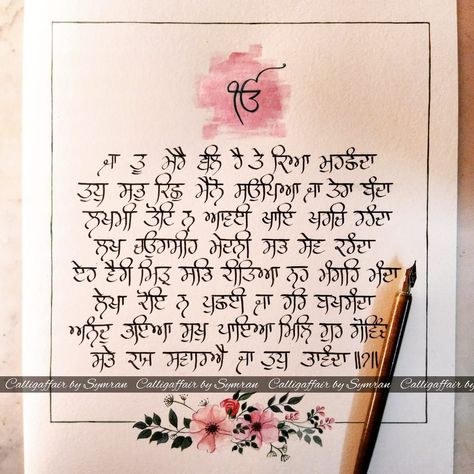 ੴ
ਜਾ ਤੂ ਮੇਰੈ ਵਲਿ ਹੈ ਤੇ ਕਿਆ ਮੁਹਛੰਦਾ
ਤੁਧੁ ਸਭੁ ਕਿਛੁ ਮੈਨੋ ਸਉਪਿਆ ਜਾ ਤੇਰਾ ਬੰਦਾ
ਲਖਮੀ ਤੋਟਿ ਨ ਆਵਈ ਖਾਇ ਖਰਚਿ ਰਹੰਦਾ
ਲਖ ਚਉਰਾਸੀਹ ਮੇਦਨੀ ਸਭ ਸੇਵ ਕਰੰਦਾ
ਏਹ ਵੈਰੀ ਮਿਤ੍ਰ ਸਭਿ ਕੀਤਿਆ ਨਹ ਮੰਗਹਿ ਮੰਦਾ
ਲੇਖਾ ਕੋਇ ਨ ਪੁਛਈ ਜਾ ਹਰਿ ਬਖਸੰਦਾ
ਅਨੰਦੁ ਭਇਆ ਸੁਖੁ ਪਾਇਆ ਮਿਲਿ ਗੁਰ ਗੋਵਿੰਦਾ
ਸਭੇ ਕਾਜ ਸਵਾਰਿਐ ਜਾ ਤੁਧੁ ਭਾਵੰਦਾ ॥੭॥
Calligaffair by Symran Calligaffair by Symran Calligaffair by Symran Calligaffair by